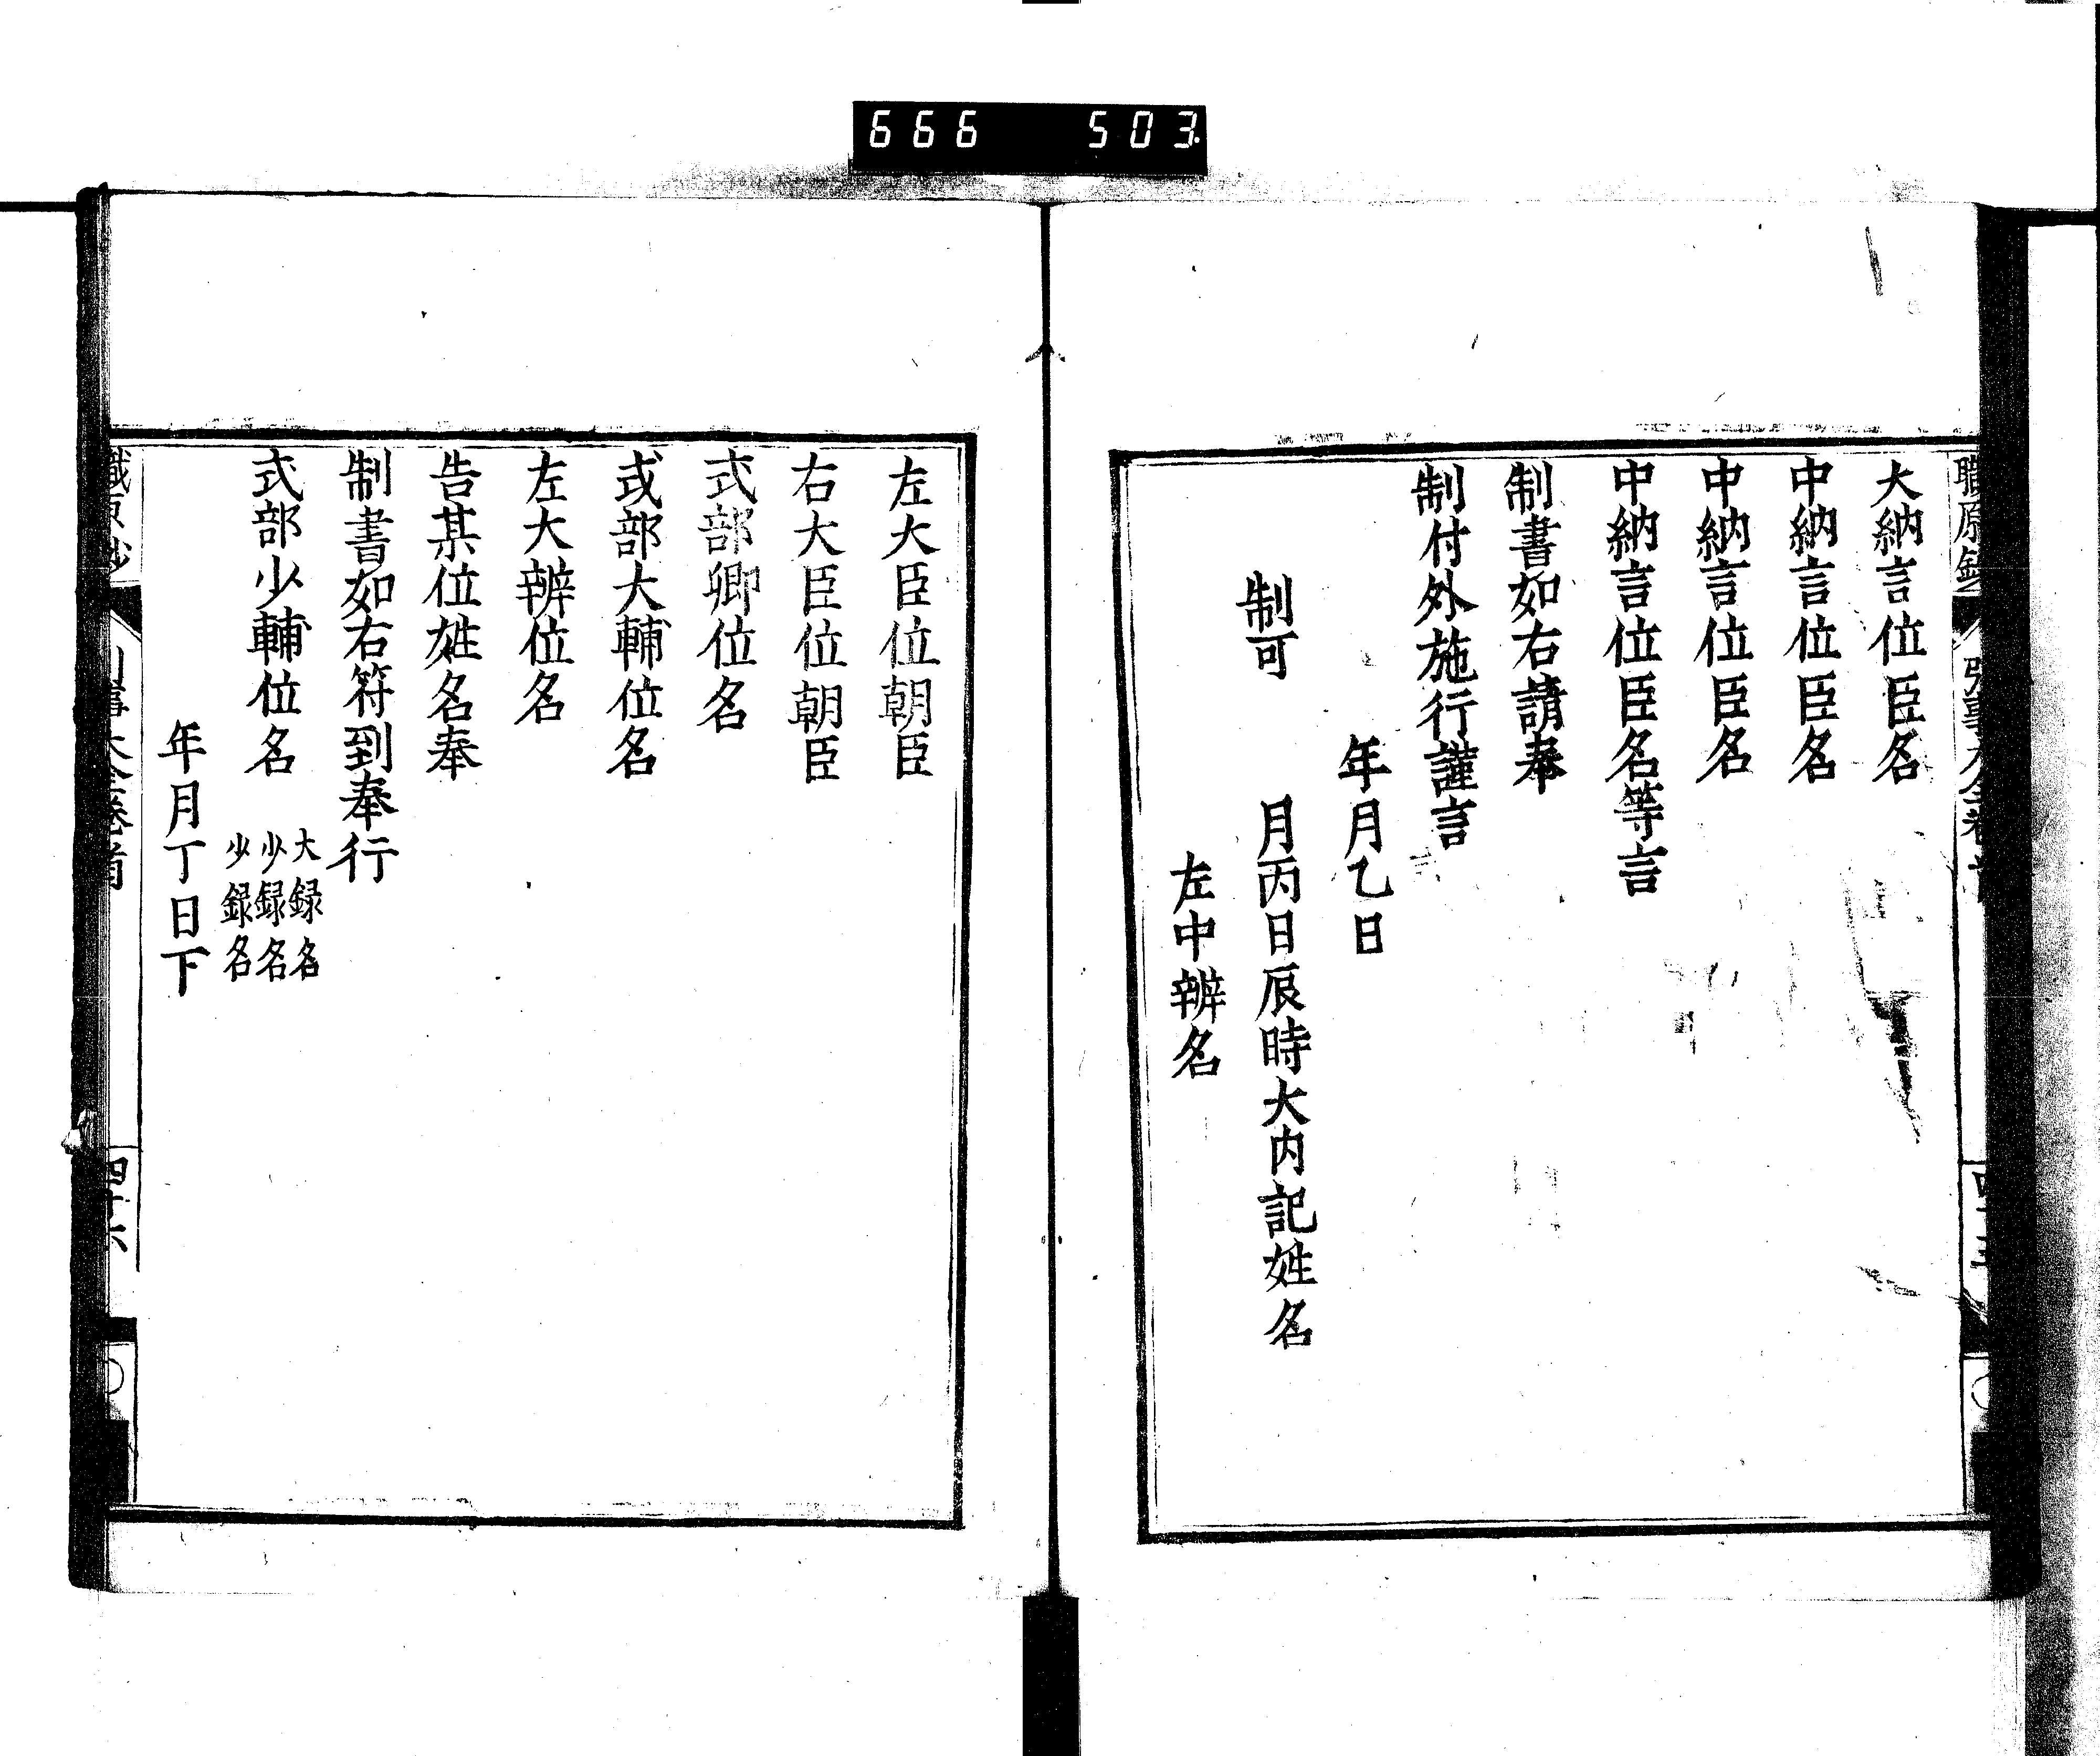 666 503
大納言位臣名
中納言位臣名
中納言位臣名
中納言位臣名等言
制書如右請奉
制付外施行謹言
年月乙日
制可 月丙日辰時大内記姓名
左中辨名
左大臣位朝臣
右大臣位朝臣
式部卿位名
式部大輔位名
左大辨位名
告某位姓名奉
制書如右符到奉行
式部少輔位名
大録名
少録名
少録名
年月丁日下
四十六